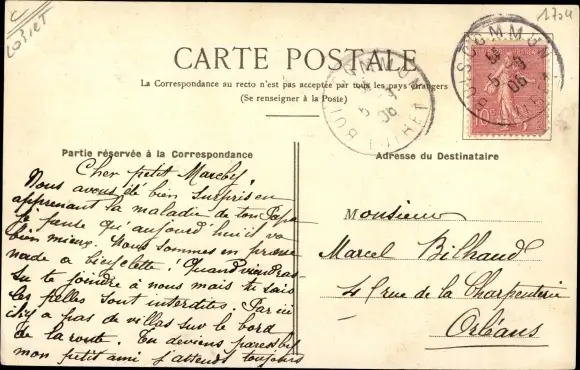 LOIRET
1704
CARTE POSTALE
La Correspondance au recto n'est pas acceptée par tous les pays étrangers
(Se renseigner à la Poste)
BOISCOMMUN
LOIRET
06
BOISCOMMUN
LOIRET
06
Partie réservée à la Correspondance
Cher petit Marcel,
Nous avons été bien surpris en
apprenant la maladie de ton Papa
Je pense qu'aujourd'hui il va
bien mieux. Nous sommes en prome
nade a ! Quand viendras-
tu te joindre à nous mais tu sais
les filles sont interdites. Par ici
il y a pas de villas sur le bord
de la route. Tu deviens paresseux
mon petit ami j'attends toujours
Adresse du Destinataire
Monsieur
Marcel Bilhaud
4 rue de la Charpenterie
Orléans